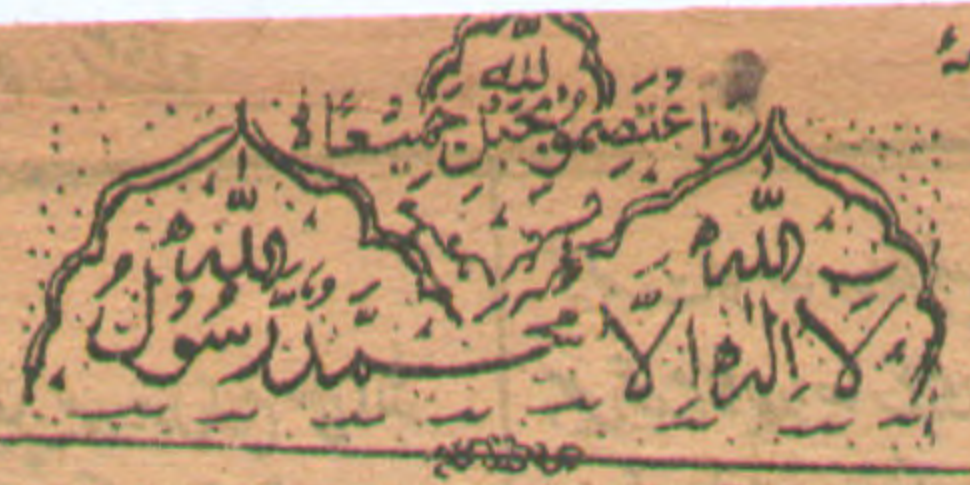 واعتصموا بحبل الله جميعًا
لا اله الا الله
محمد رسول الله